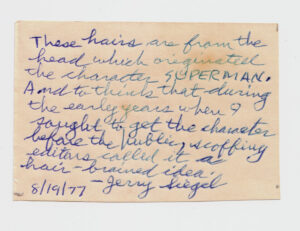 These hairs are from the
head which originated
the character SUPERMAN.
And to think that during
the early years when I
sought to get the character
before the public, scoffing
editors called it a
hair-brained idea.
8/19/77 -Jerry Siegel